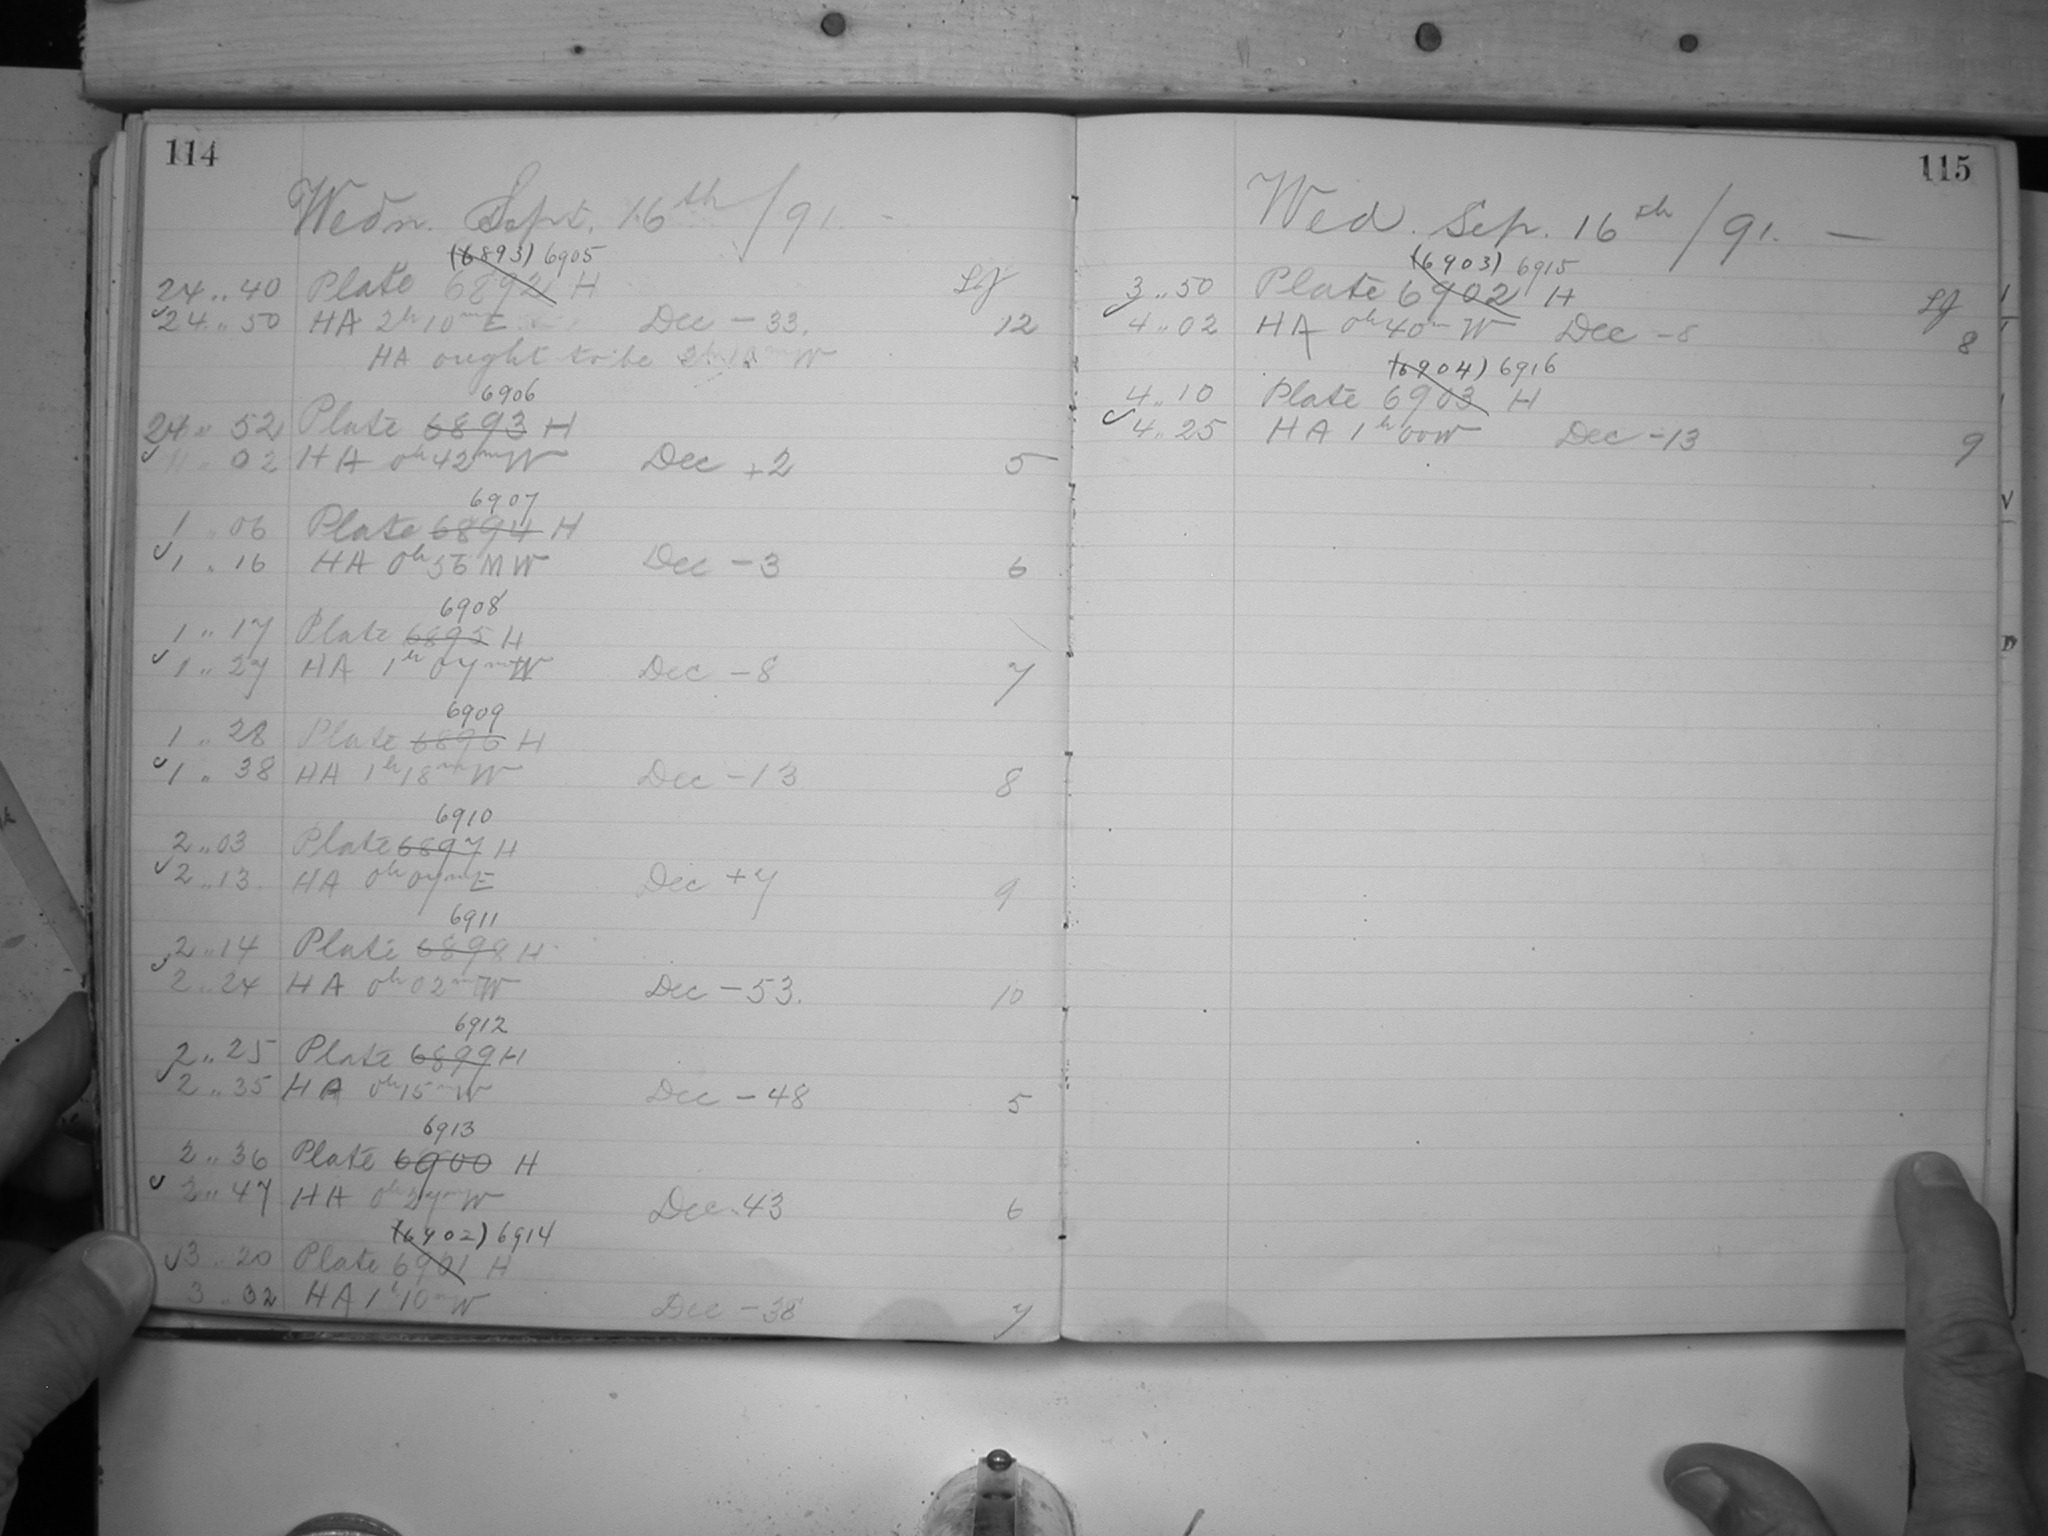 114
Wedn. Sept. 16th/91. —
(6893) 6905
24 .. 40 Plate 6892 H Lf
24 .. 50 HA 2h10mE Dec - 33. 12
HA ought to be
6906
24 .. 52 Plate 6893 H
.. 02 HA 0h42mW Dec +2 5
6907
1 .. 06 Plate 6894 H
1 .. 16 HA 0h56MW Dec - 3 6
6908
1 .. 17 Plate 6895 H
1 .. 27 HA 1h07mW Dec - 8 7
6909
1 .. 28 Plate 6896 H
1 .. 38 HA 1h18mW Dec - 13 8
6910
2 .. 03 Plate 6897 H
2 .. 13. HA 0h04mE Dec + 7 9
6911
2 .. 14 Plate 6898 H
2 .. 24 HA 0h02mW Dec - 53. 10
6912
2 .. 25 Plate 6899 H
2 .. 35 HA 0h15mW Dec - 48 5
6913
2 .. 36 Plate 6900 H
2 .. 47 HA 0h27mW Dec - 43 6
(6902) 6914
3 .. 20 Plate 6901 H
3 .. 32 HA 1h10mW Dec - 38 7
115
Wed. Sep. 16th/91. —
(6903) 6915
3 .. 50 Plate 6902 H Lf
4 .. 02 HA 0h40mW Dec - 8 8
(6904) 6916
4 .. 10 Plate 6903 H
4 .. 25 HA 1h00W Dec - 13 9